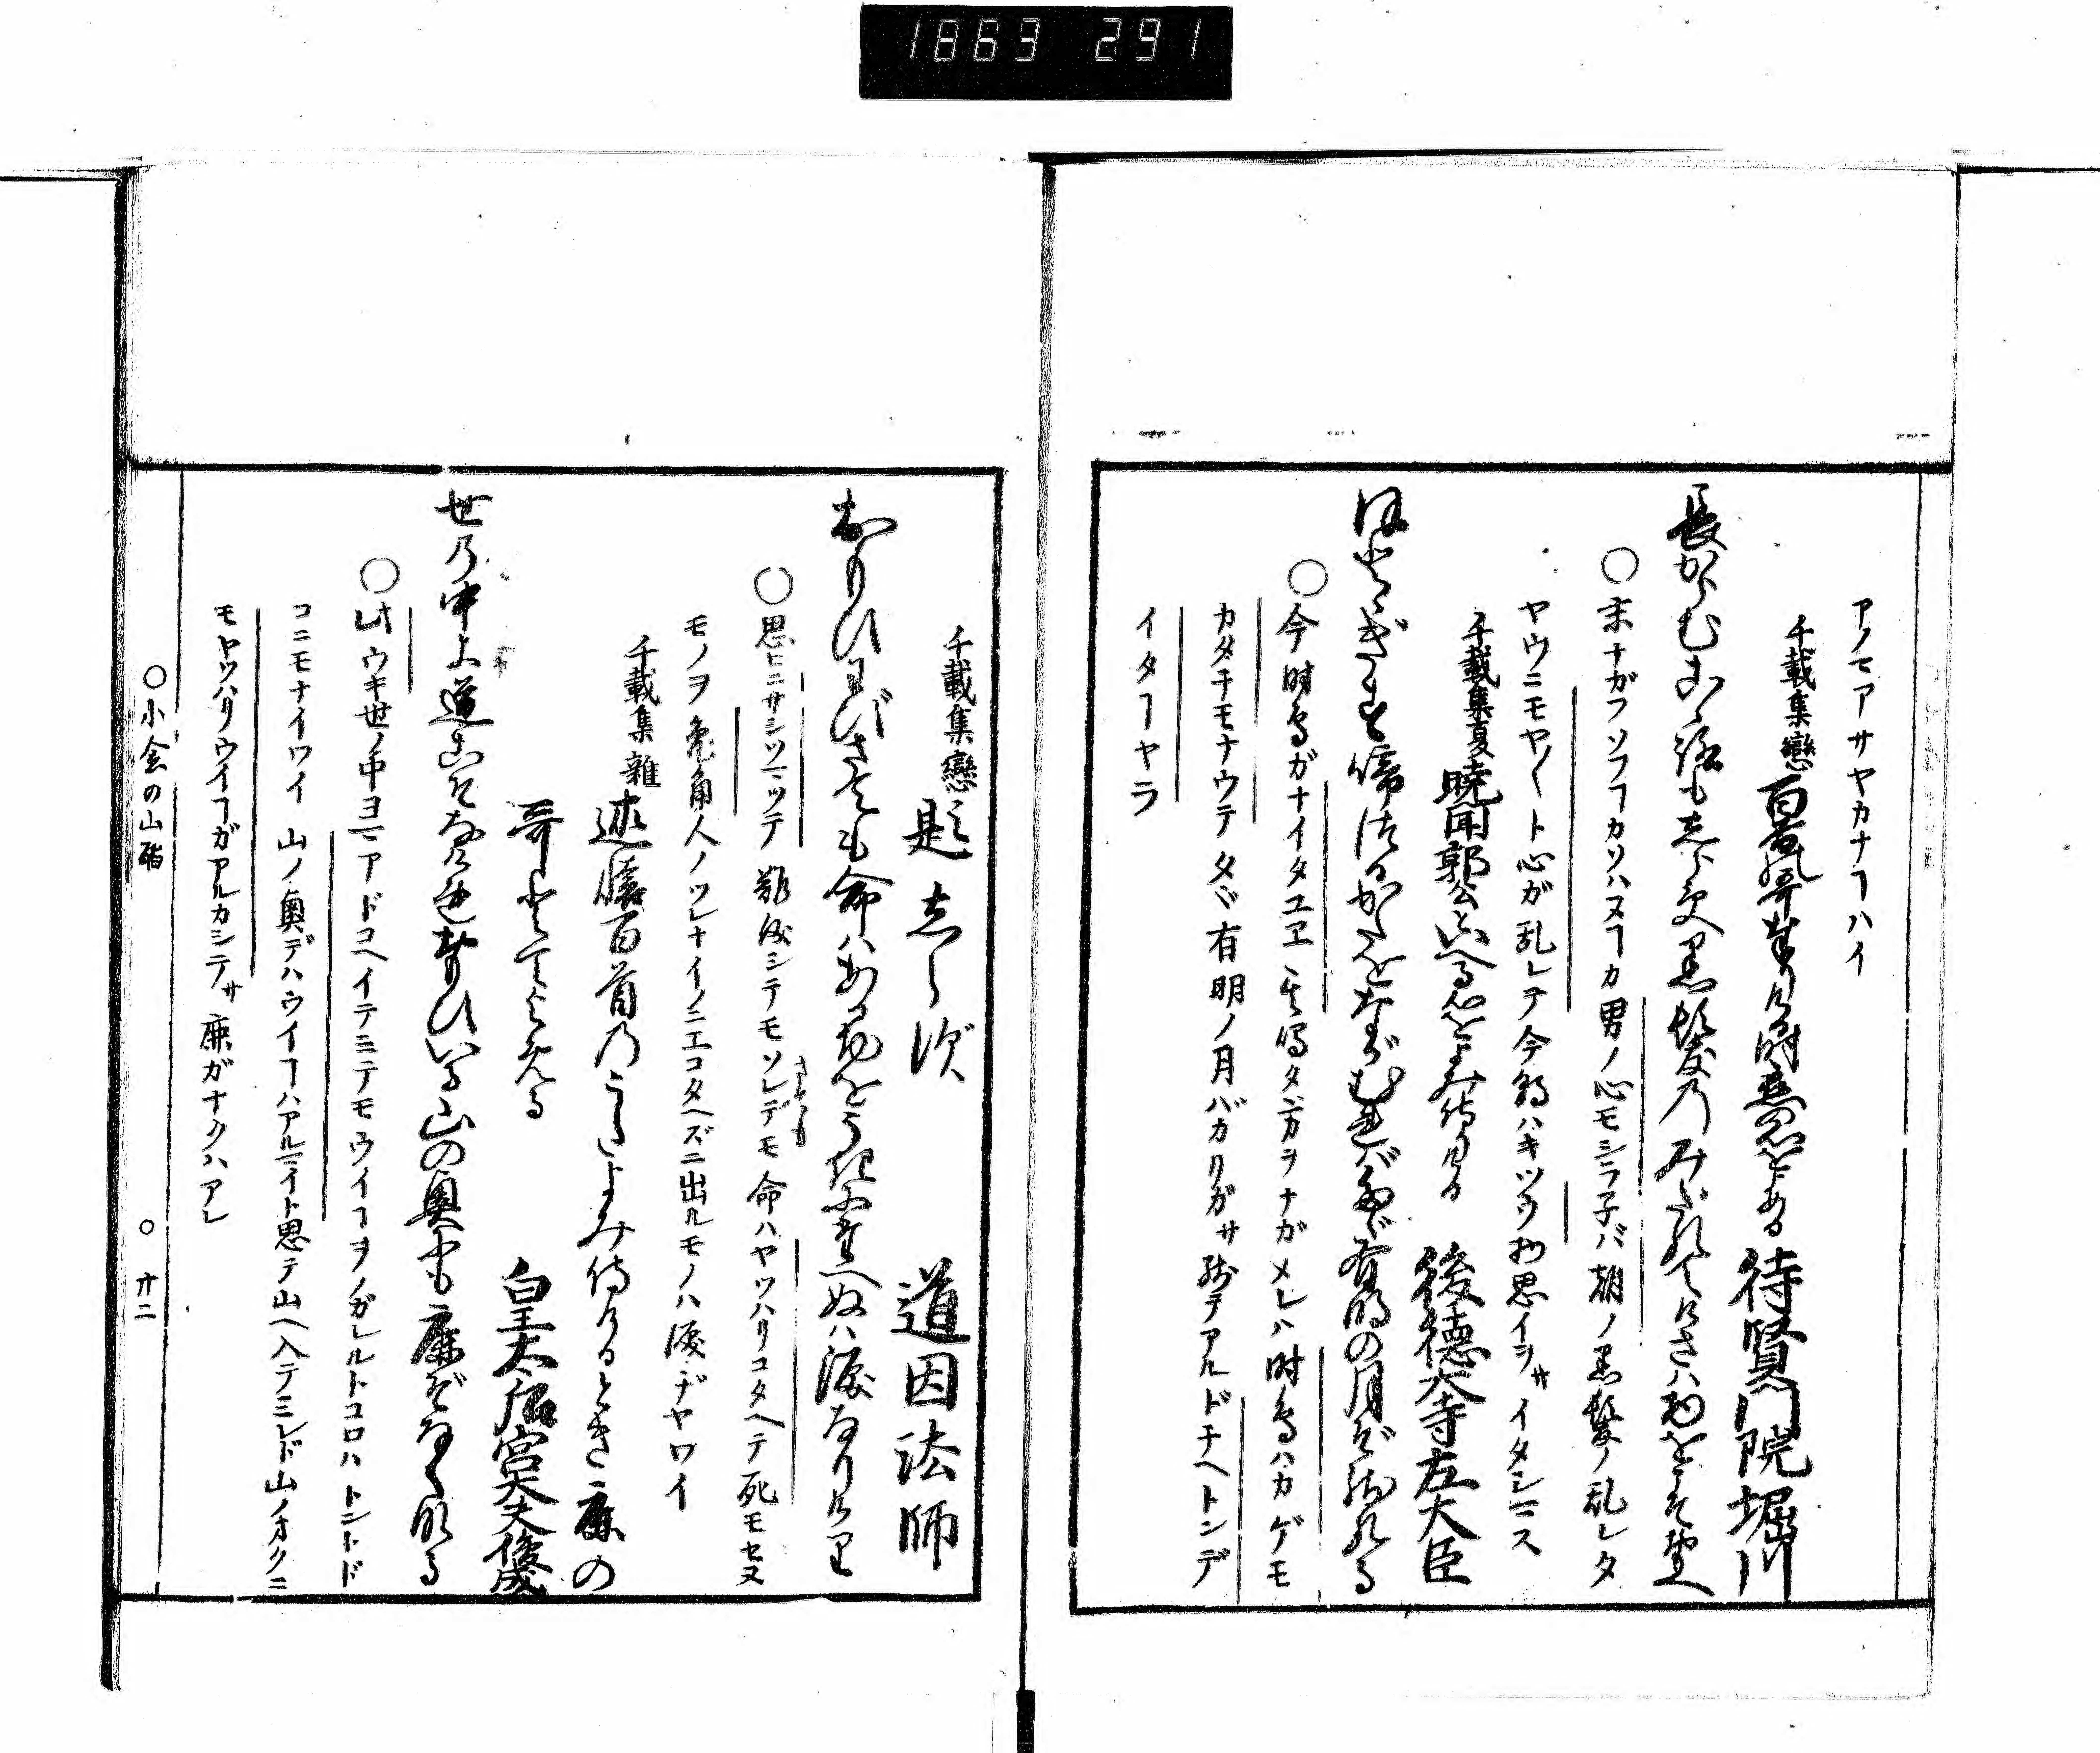 1863 291
アノマアサヤカナヿハイ
千載集戀 百首哥奉りける時恋の心をよめる 待賢門院堀川
長からむ心も志らず黒髪乃みだれてけさハ物をこそ思へ
○末ナガフソフヿカソハヌヿカ男ノ心モシラ子バ朝ノ黒髪ノ乱レタ
ヤウニモヤ〳〵ト心ガ乱レテ今朝ハキツウ物思イヲサイタシマス
千載集夏 暁聞郭公といへる心をよみ侍りける 後徳大寺左大臣
ほとゝぎす啼つるかたをながむればたゞ有明の月ぞ残れる
○今時鳥ガナイタユヱ其鳴タ方ヲナガメレハ時鳥ハカゲモ
カタチモナウテタヾ有明ノ月バカリガサ残テアルドチヘトンデ
イタヿヤラ
千載集戀 題志らず 道因法師
おもひわびさても命ハあるものをうきに堪へぬハ涙なりけり
○思ヒニサシツマツテ難渋シテモソレデモ命ハヤツハリコタヘテ死モセヌ
モノヲ兎角人ノツレナイノニエコタヘズニ出ルモノハ涙ヂヤワイ
千載集雜 述懐百首乃うたよみ侍りけるとき鹿の
哥とてよめる 皇太后宮大夫俊成
世乃中よ道こそなけれ思ひいる山の奥にも鹿ぞなくなる
コニモナイワイ 山ノ奥デハウイヿハアルマイト思テ山ヘ入テミレド山ノオクニ
モヤツハリウイヿガアルカシテサ鹿ガナクハアレ
○小倉の山
○ 廿二